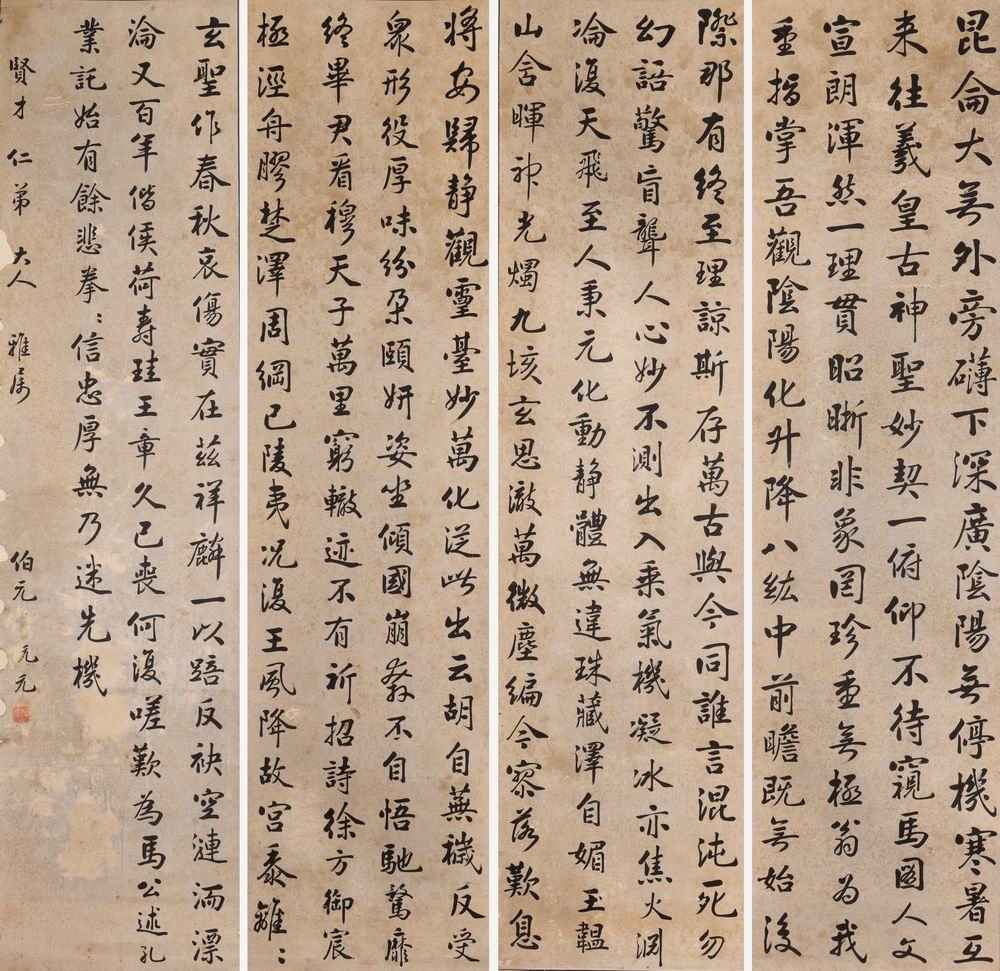 昆侖大無外旁礴下深廣陰陽無停機寒暑互
来往羲皇古神聖妙契一俯仰不待窺馬圖人文
宣朗渾然一理貫昭晰非象罔珍重無極翁為我
重指掌吾觀陰陽化升降八紘中前瞻既無始後
際那有終至理諒斯存萬古與今同誰言混沌死勿
幻語驚盲聾人心妙不測出入乘氣機凝冰亦焦火淵
淪復天飛至人秉元化動静體無違珠藏澤自媚玉韞
山含暉神光燭九垓玄思澈萬微塵編今寥落歎息
將安歸静觀靈臺妙萬化從此出云胡自蕪穢反受
衆形役厚味紛朶頤妍姿坐傾國崩奔不自悟馳騖靡
終畢君看穆天子萬里窮轍迹不有祈招詩徐方御宸
極涇舟膠楚澤周綱已陵夷况復王風降故宫黍離〻
玄聖作春秋哀傷實在兹祥麟一以踣反袂空漣洏漂
淪又百年僭侯荷壽珪王章久已喪何復嗟歎為馬公述孔
業託始有餘悲拳〻信忠厚無乃迷先機
賢才仁弟大人雅屬 伯元阮元